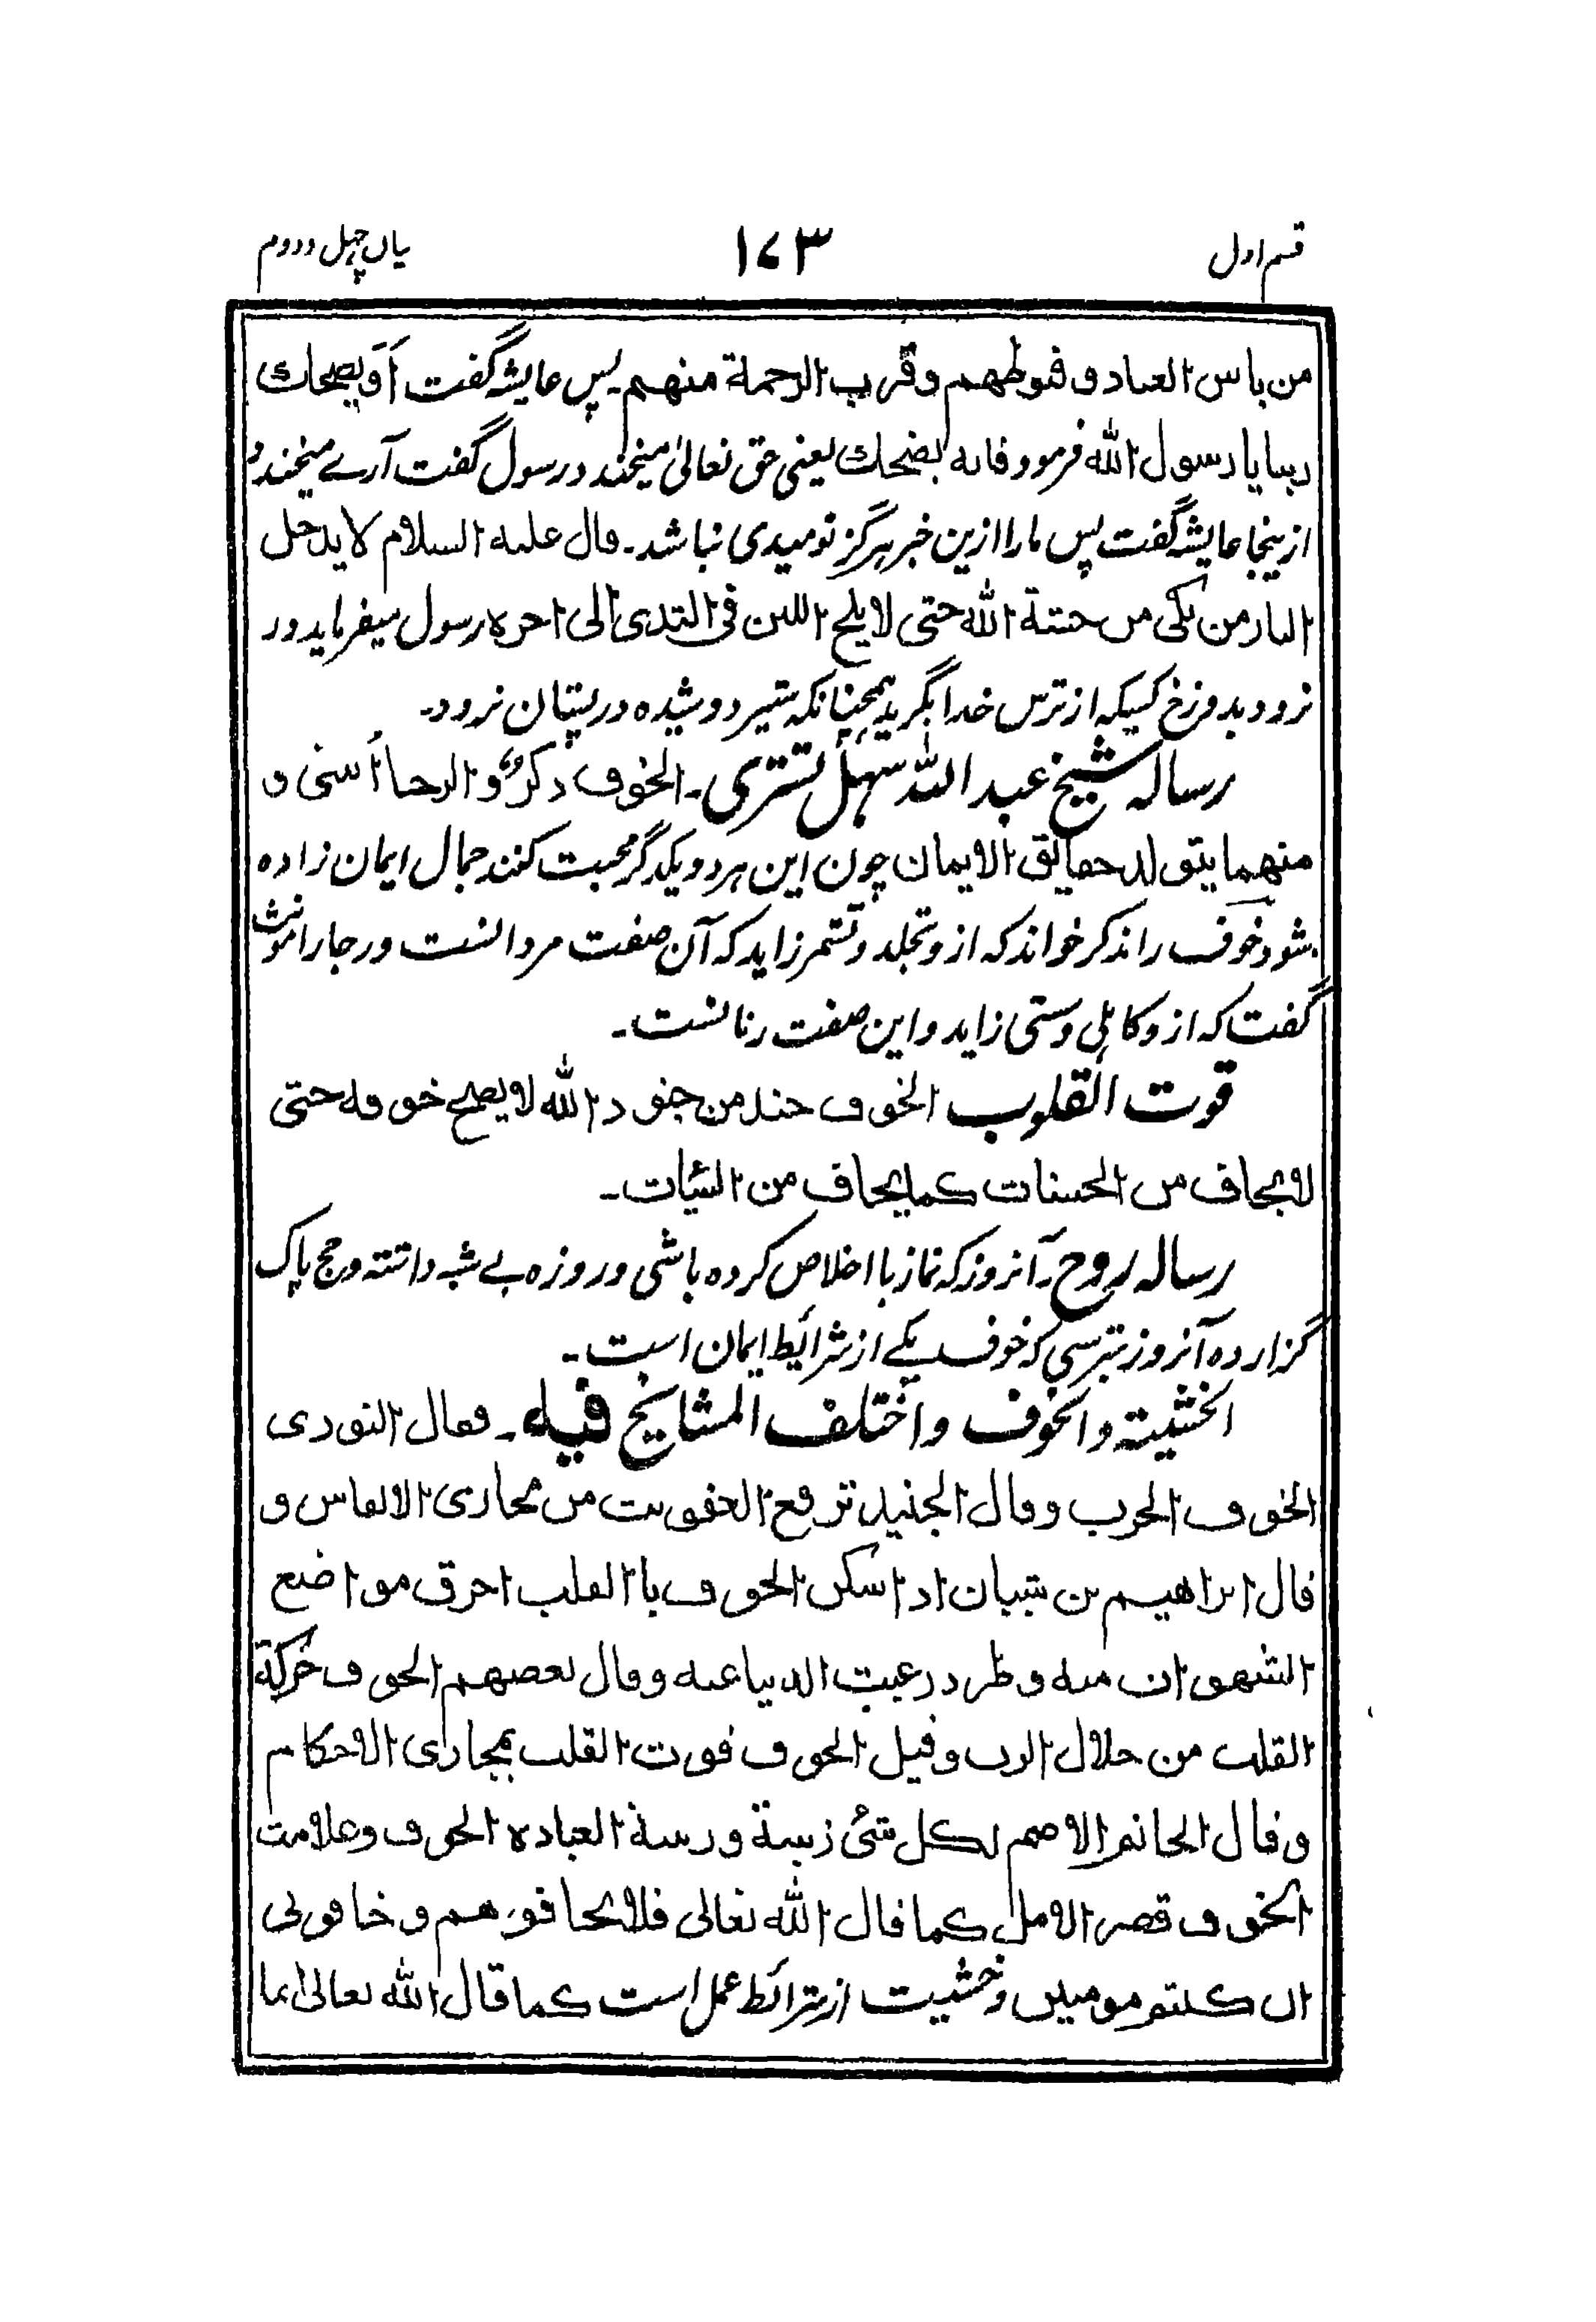 قسم اول ۱۷۳ بیان چہل و دوم
من یاس العباد و قنوطهم و قرب الرحمة منهم۔ پس عایشہ گفت اَوَ یضحك
ربنا یا رسول الله فرمود فانه یضحك یعنی حق تعالیٰ میخندد رسول گفت آرے میخندد
از ینجا عایشہ گفت پس ما را ازین خبر ہرگز نومیدی نباشد۔ قال علیه السلام لا یدخل
النار من بکی من خشیة الله حتی لا یلج اللبن فی الثدی الی اخره رسول میفرماید در
نرود بدوزخ کسیکہ از ترس خدا بگرید ہمچنانکہ شیر دوشیدہ در پستان نرود۔
رسالہ شیخ عبد اللہ سہل تستری۔ الخوف ذکرٌ و الرجا اُنثی و
منهما یتولد حقایق الایمان چون این ہر دو یکدگر محبت کنند جمال ایمان زادہ
شود خوف را ذکر خواند کہ از و تجلد و تشمر زاید کہ آن صفت مردانست و رجا را مونث
گفت کہ از و کاہلی و سستی زاید و این صفت زنانست۔
قوت القلوب الخوف جند من جنود الله لا یصح خوفه حتی
لا یخاف من الحسنات کما یخاف من السیئات۔
رسالہ روح۔ آنروز کہ نماز با اخلاص کردہ باشی و روزہ بے شبہ داشتہ و حج پاک
گزاردہ آنروز بترسی کہ خوف یکے از شرائط ایمان است۔
الخشیة و الخوف و اختلف المشایخ فیه۔ فقال النوری
الخوف الحرب و قال الجنید توقع العقوبت من مجاری الانفاس و
قال ابراهیم بن شیبان اذا سکن الخوف با القلب احرق مواضع
الشهوات منه و طرد رغبت الدنیا عنه و قال بعضهم الخوف حرکة
القلب من جلال الرب و قیل الخوف قوت القلب بمجاری الاحکام
و قال الحاتم الاصم لکل شئ زینة و زینة العباده الخوف و علامت
الخوف قصر الامل کما قال الله تعالی فلا تخافوهم و خافونی
ان کنتم مومنین و خشیت از شرائط عمل است کما قال الله تعالیٰ انما